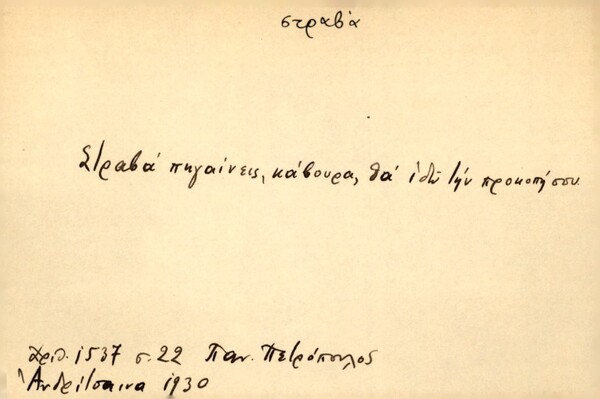 στραβά
Στραβά πηγαίνεις, κάβουρα, θά ἰδῶ τήν προκοπή σου.
Ἀριθ. 1537 σ. 22 Παν. Πετρόπουλος
Ἀνδρίτσαινα 1930